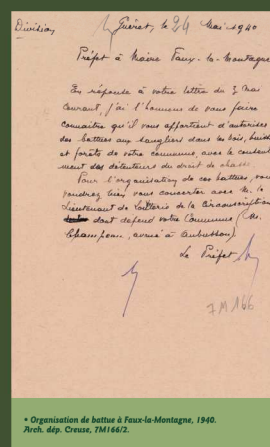 Division
Guéret, le 24 Mai 1940
Préfet à Maire Faux-la-Montagne
En réponse à votre lettre du 3 Mai
courant, j'ai l'honneur de vous faire
connaître qu'il vous appartient d'autoriser
des battues aux sangliers dans les bois,
et forêts de votre commune, avec le consente
ment des détenteurs du droit de chasse
Pour l'organisation de ces battues, vous
voudrez bien vous concerter avec M. le
Lieutenant de Louveterie de la Circonscription
dont dépend votre Commune (M.
à Aubusson).
Le Préfet
7M166
• Organisation de battue à Faux-la-Montagne, 1940.
Arch. dép. Creuse, 7M166/2.